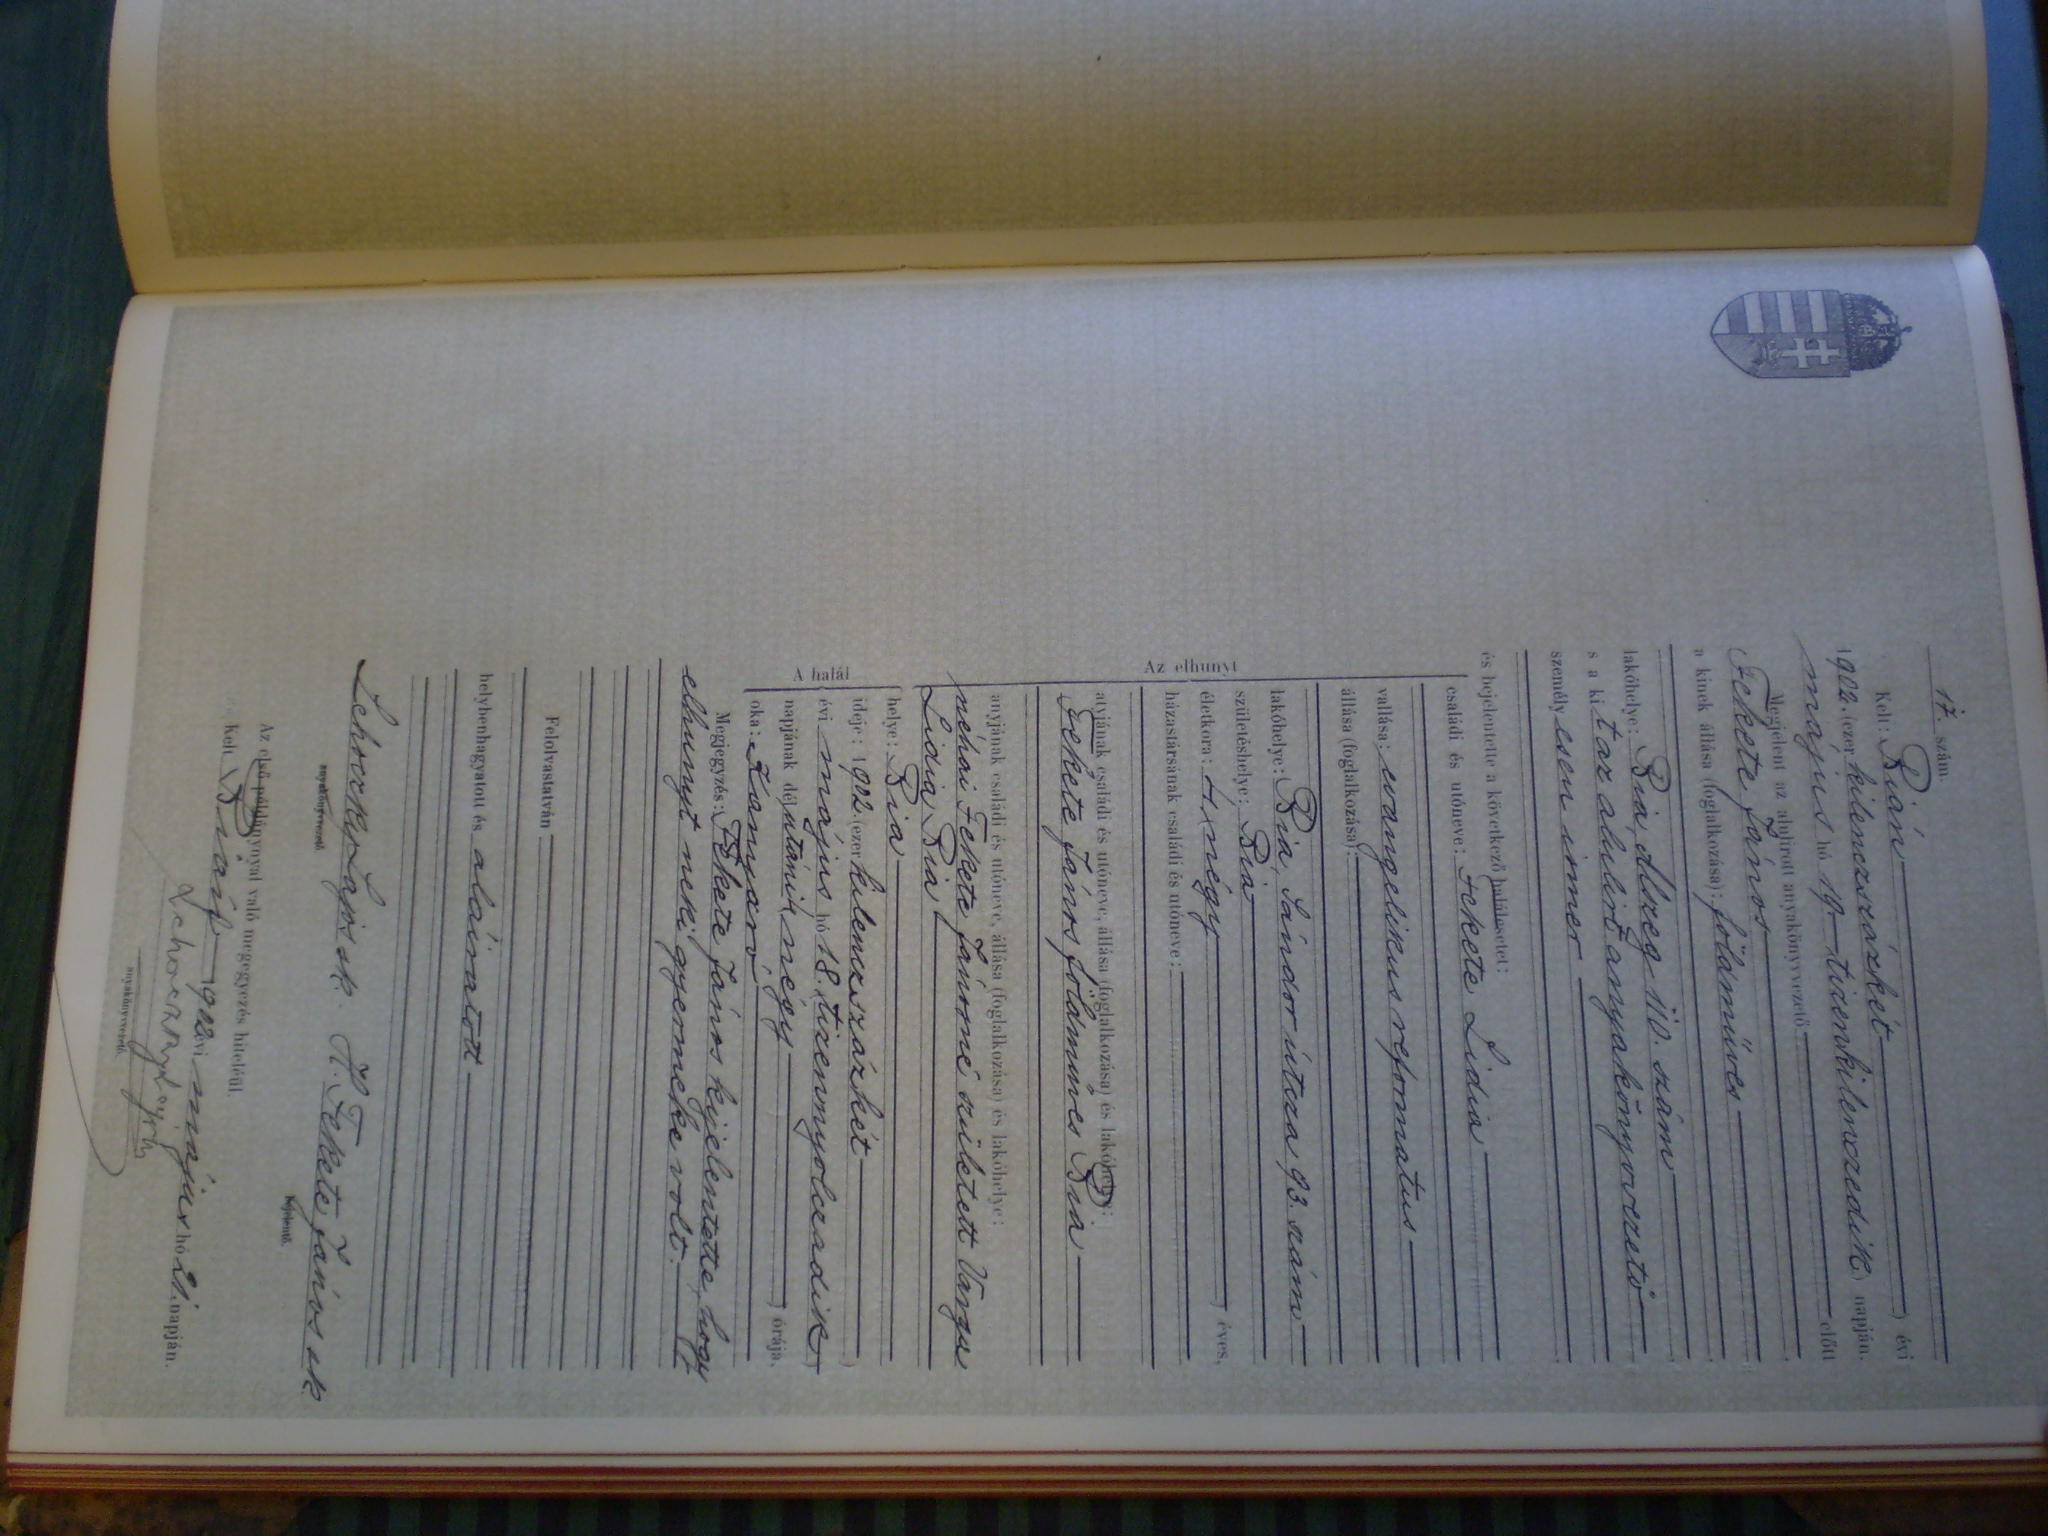 17. szám.
Kelt: Bián évi
1902. (ezer kilenczszázkét
május hó 19. tizenkilenczedik) napján.
Megjelent az alulirott anyakönyvvezető előtt
Fekete János
a kinek állása (foglalkozása): földmüves
lakóhelye: Bia, Alszeg 110. szám
s a ki t az alulirt anyakönyvvezető
személyesen ismer
és bejelentette a következő halálesetet:
Az elhunyt
családi és utóneve: Fekete Lidia
vallása: evangelikus reformatus
állása (foglalkozása):
lakóhelye: Bia, Sándor útcza 93. szám
születéshelye: Bia
életkora: 4, négy ) éves,
házastársának családi és utóneve:
atyjának családi és utóneve, állása (foglalkozása) és lakóhelye:
Fekete János földmüves Bia
anyjának családi és utóneve, állása (foglalkozása) és lakóhelye:
néhai Fekete Jánosné született Varga
Lidia Bia
A halál
helye: Bia
ideje: 1902. (ezer kilenczszázkét
évi május hó 18. (tizennyolczadik)
napjának délutáni 4, négy ) órája.
oka: Kanyaró
Megjegyzés: Fekete János kijelentette, hogy
elhunyt neki gyermeke volt.
Felolvastatván
helybenhagyatott és aláiratott
Lajos sk. F. Fekete János sk
anyakönyvvezető. bejelentő.
Az első példánynyal való megegyezés hiteléül.
Kelt Bián, 1902 évi május hó 21. napján.
anyakönyvvezető.